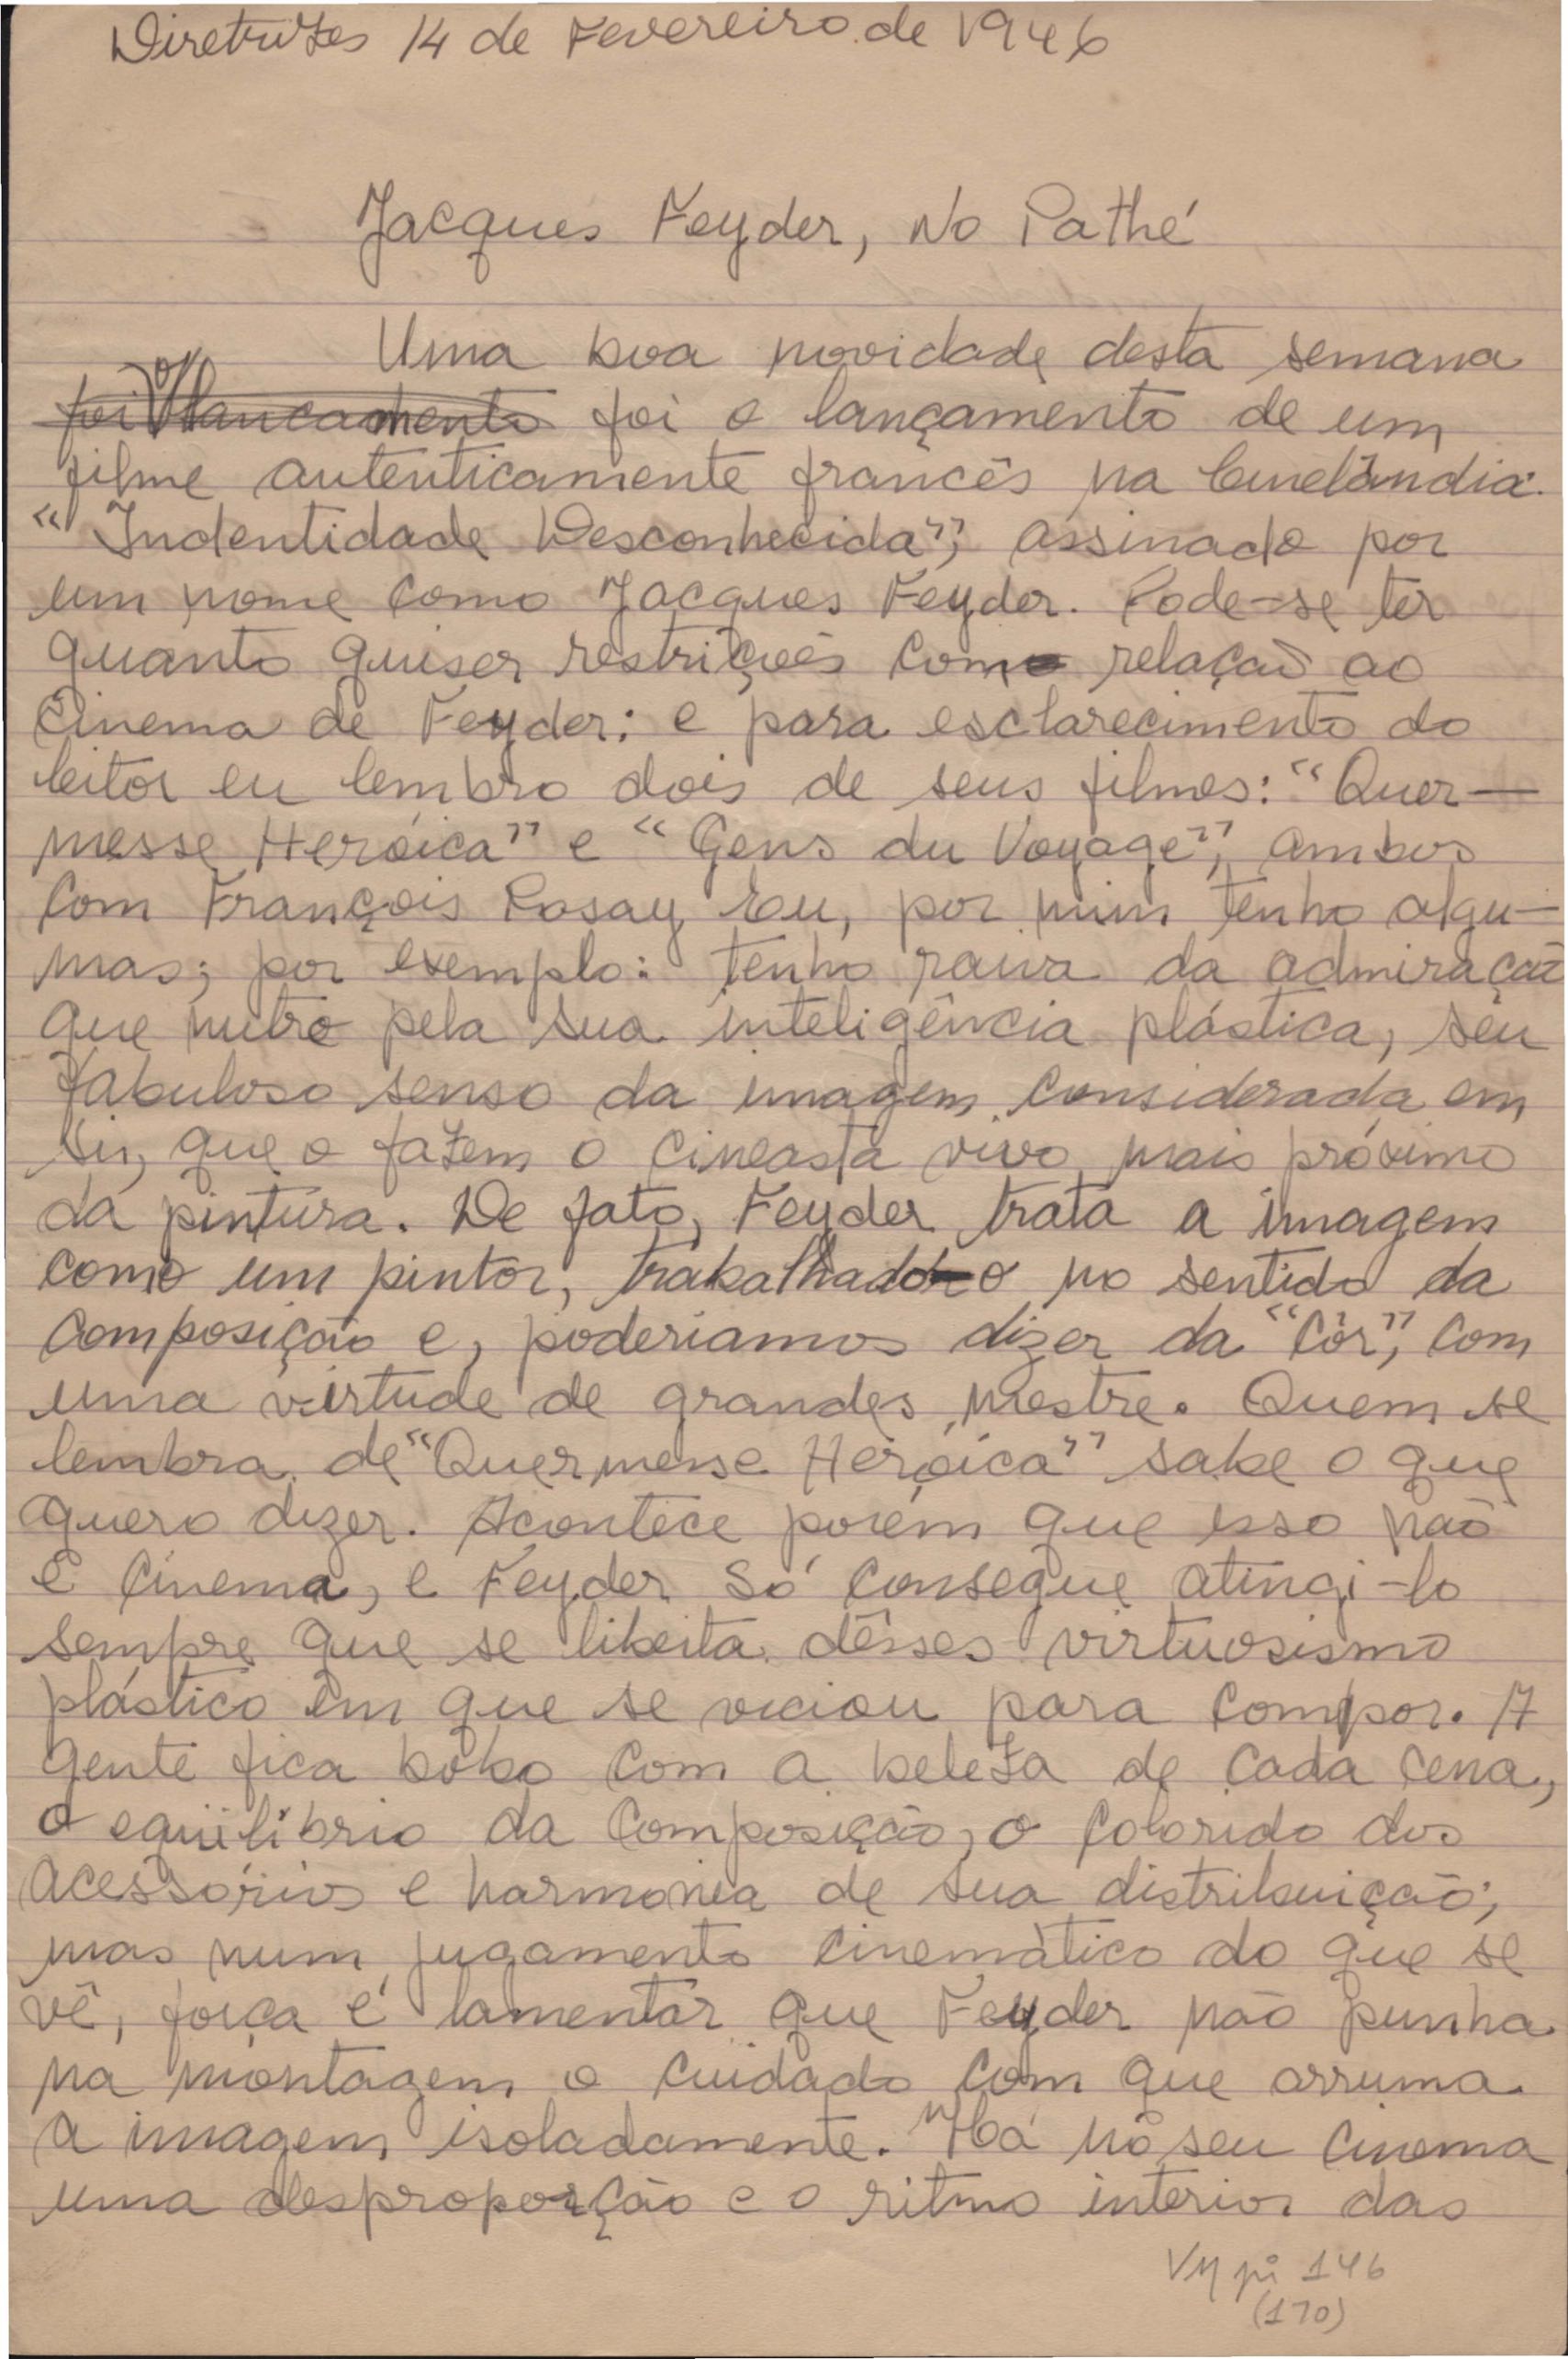 Diretrizes 14 de Fevereiro de 1946
Jacques Feyder, No Pathé
Uma boa novidade desta semana
foi o lancamento foi o lançamento de um
filme autenticamente francês na Cinelândia.
"Indentidade Desconhecida", assinado por
um nome como Jacques Feyder. Pode-se ter
quanto quiser restrições com relação ao
Cinema de Feyder: e para esclarecimento do
leitor eu lembro dois de seus filmes: "Quer-
messe Heróica" e "Gens du Voyage", ambos
com François Rosay Eu, por mim tenho algu-
mas; por exemplo: tenho raiva da admiração
que nutro pela sua inteligência plástica, seu
fabuloso senso da imagem considerada em
si, que o fazem o cineasta vivo mais próximo
da pintura. De fato, Feyder trata a imagem
como um pintor, trabalhado-o no sentido da
composição e, poderiamos dizer da "Côr", com
uma virtude de grandes mestre. Quem se
lembra de "Quermesse Heróica" sabe o que
quero dizer. Acontece porém que isso não
é Cinema, e Feyder só consegue atingi-lo
sempre que se liberta dêsses virtuosismo
plástico em que se viciou para compor. A
gente fica bobo com a beleza de cada cena,
o equilíbrio da composição, o colorido dos
acessórios e harmonia de sua distribuição;
mas num jugamento cinemático do que se
vê, força é lamentar que Feyder não punha
na montagem o cuidado com que arruma
a imagem isoladamente. Há no seu cinema
uma desproporção e o ritmo interior das
VM pi 146
(170)